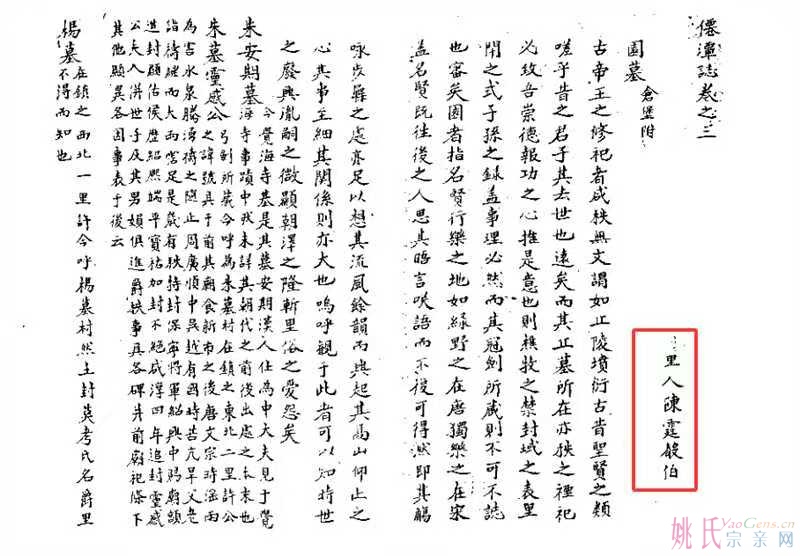 僊潭誌卷之三
園墓 倉堡附
里人陳霆聲伯
古帝王之修祀者咸秩無文謂如丘陵墳衍古昔聖賢之類
嗟乎昔之君子其去世也遠矣而其丘墓所在亦秩之禋祀
必致吾崇德報功之心推是意也則樵牧之禁封域之表里
閈之式子孫之録盖事理必然而其冠劍所藏則不可不誌
也審矣園者指名賢行樂之地如綠野之在唐獨樂之在宋
盖名賢既往後之人思其晤言咲語而不復可得然即其觴
咏步屧之處亦足以想其流風餘韻而興起其高山仰止之
心其事主細其關係則亦大也嗚呼觀于此者可以知時世
之廢興胤嗣之微顯朝澤之隆斬里俗之愛怨矣
朱安期墓 今覺海寺基是其墓安期漢人仕為中大夫見于覺
海寺事蹟中我未詳其朝代之前後出處之本末也
朱墓靈感公 弓劍所藏今呼為朱墓村在鎮之東北二里許公
之諱號具于前其廟食新市之後唐文宗時淫雨
為害水泉騰湧禱之隨止周廣順中吳越有國時苦亢旱父老
詣禱確而大雨霑足是歲有秩持封保寧將軍紹興中賜廟額
進封顯佑侯歷紹熙端平寶祐加封不絕咸淳四年追封靈感
公夫人併世子及其男媍俱進爵秩事具各碑并前廟祀條下
其他顯異各因事表于後云
楊墓 在鎮之西北一里許今呼楊墓村然主封莫考氏名爵里
不得而知也
姚氏 YaoGens.cn
宗亲网